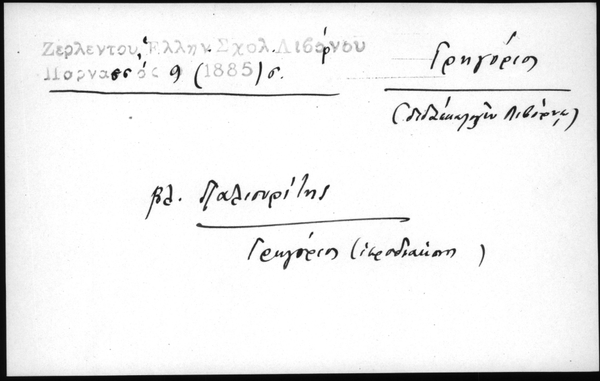 Ζερλεντου, Ἑλλην. Σχολ. Λιβόρνου
Παρνασσός 9 (1885) σ.
Γρηγόριος
(διδάσκαλος ἐν Λιβόρνῳ)
βλ. Παλιουρίτης
Γρηγόριος (ἱεροδιάκονος)